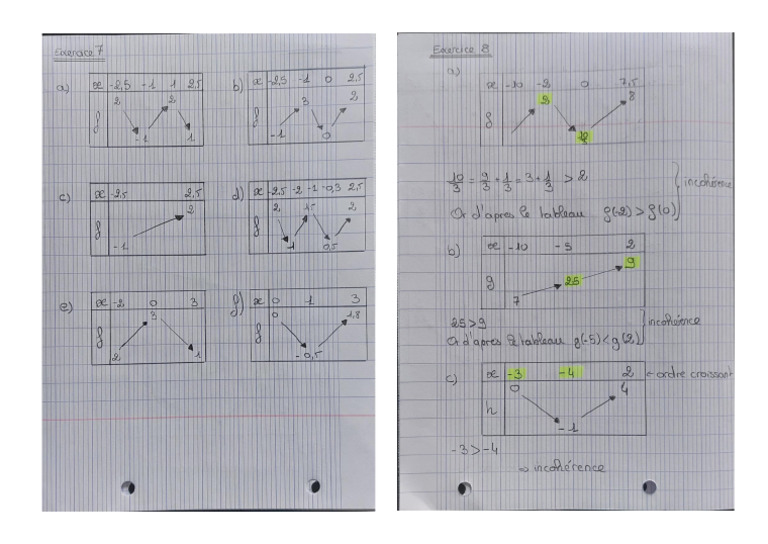 Exercice 7
a) x -2,5 -1 1 2,5
f 2 -1 2 1
b) x -2,5 -1 0 2,5
f -1 3 0 2
c) x -2,5 2,5
f -1 2
d) x -2,5 -2 -1 -0,3 2,5
f 2 1 1,5 0,5 2
e) x -2 0 3
f 2 3 1
f) x 0 1 3
f 0 -0,5 1,8
Exercice 8
a) x -10 -2 0 7,5
f 2 8
10/3 = 9/3 + 1/3 = 3 + 1/3 > 2
Or d'après le tableau f(-2) > f(0)
incohérence
b) x -10 -5 2
g 7 25 9
25 > 9
Or d'après le tableau g(-5) < g(2)
incohérence
c) x -3 -4 2 ← ordre croissant
h 0 -1 4
-3 > -4
⇒ incohérence